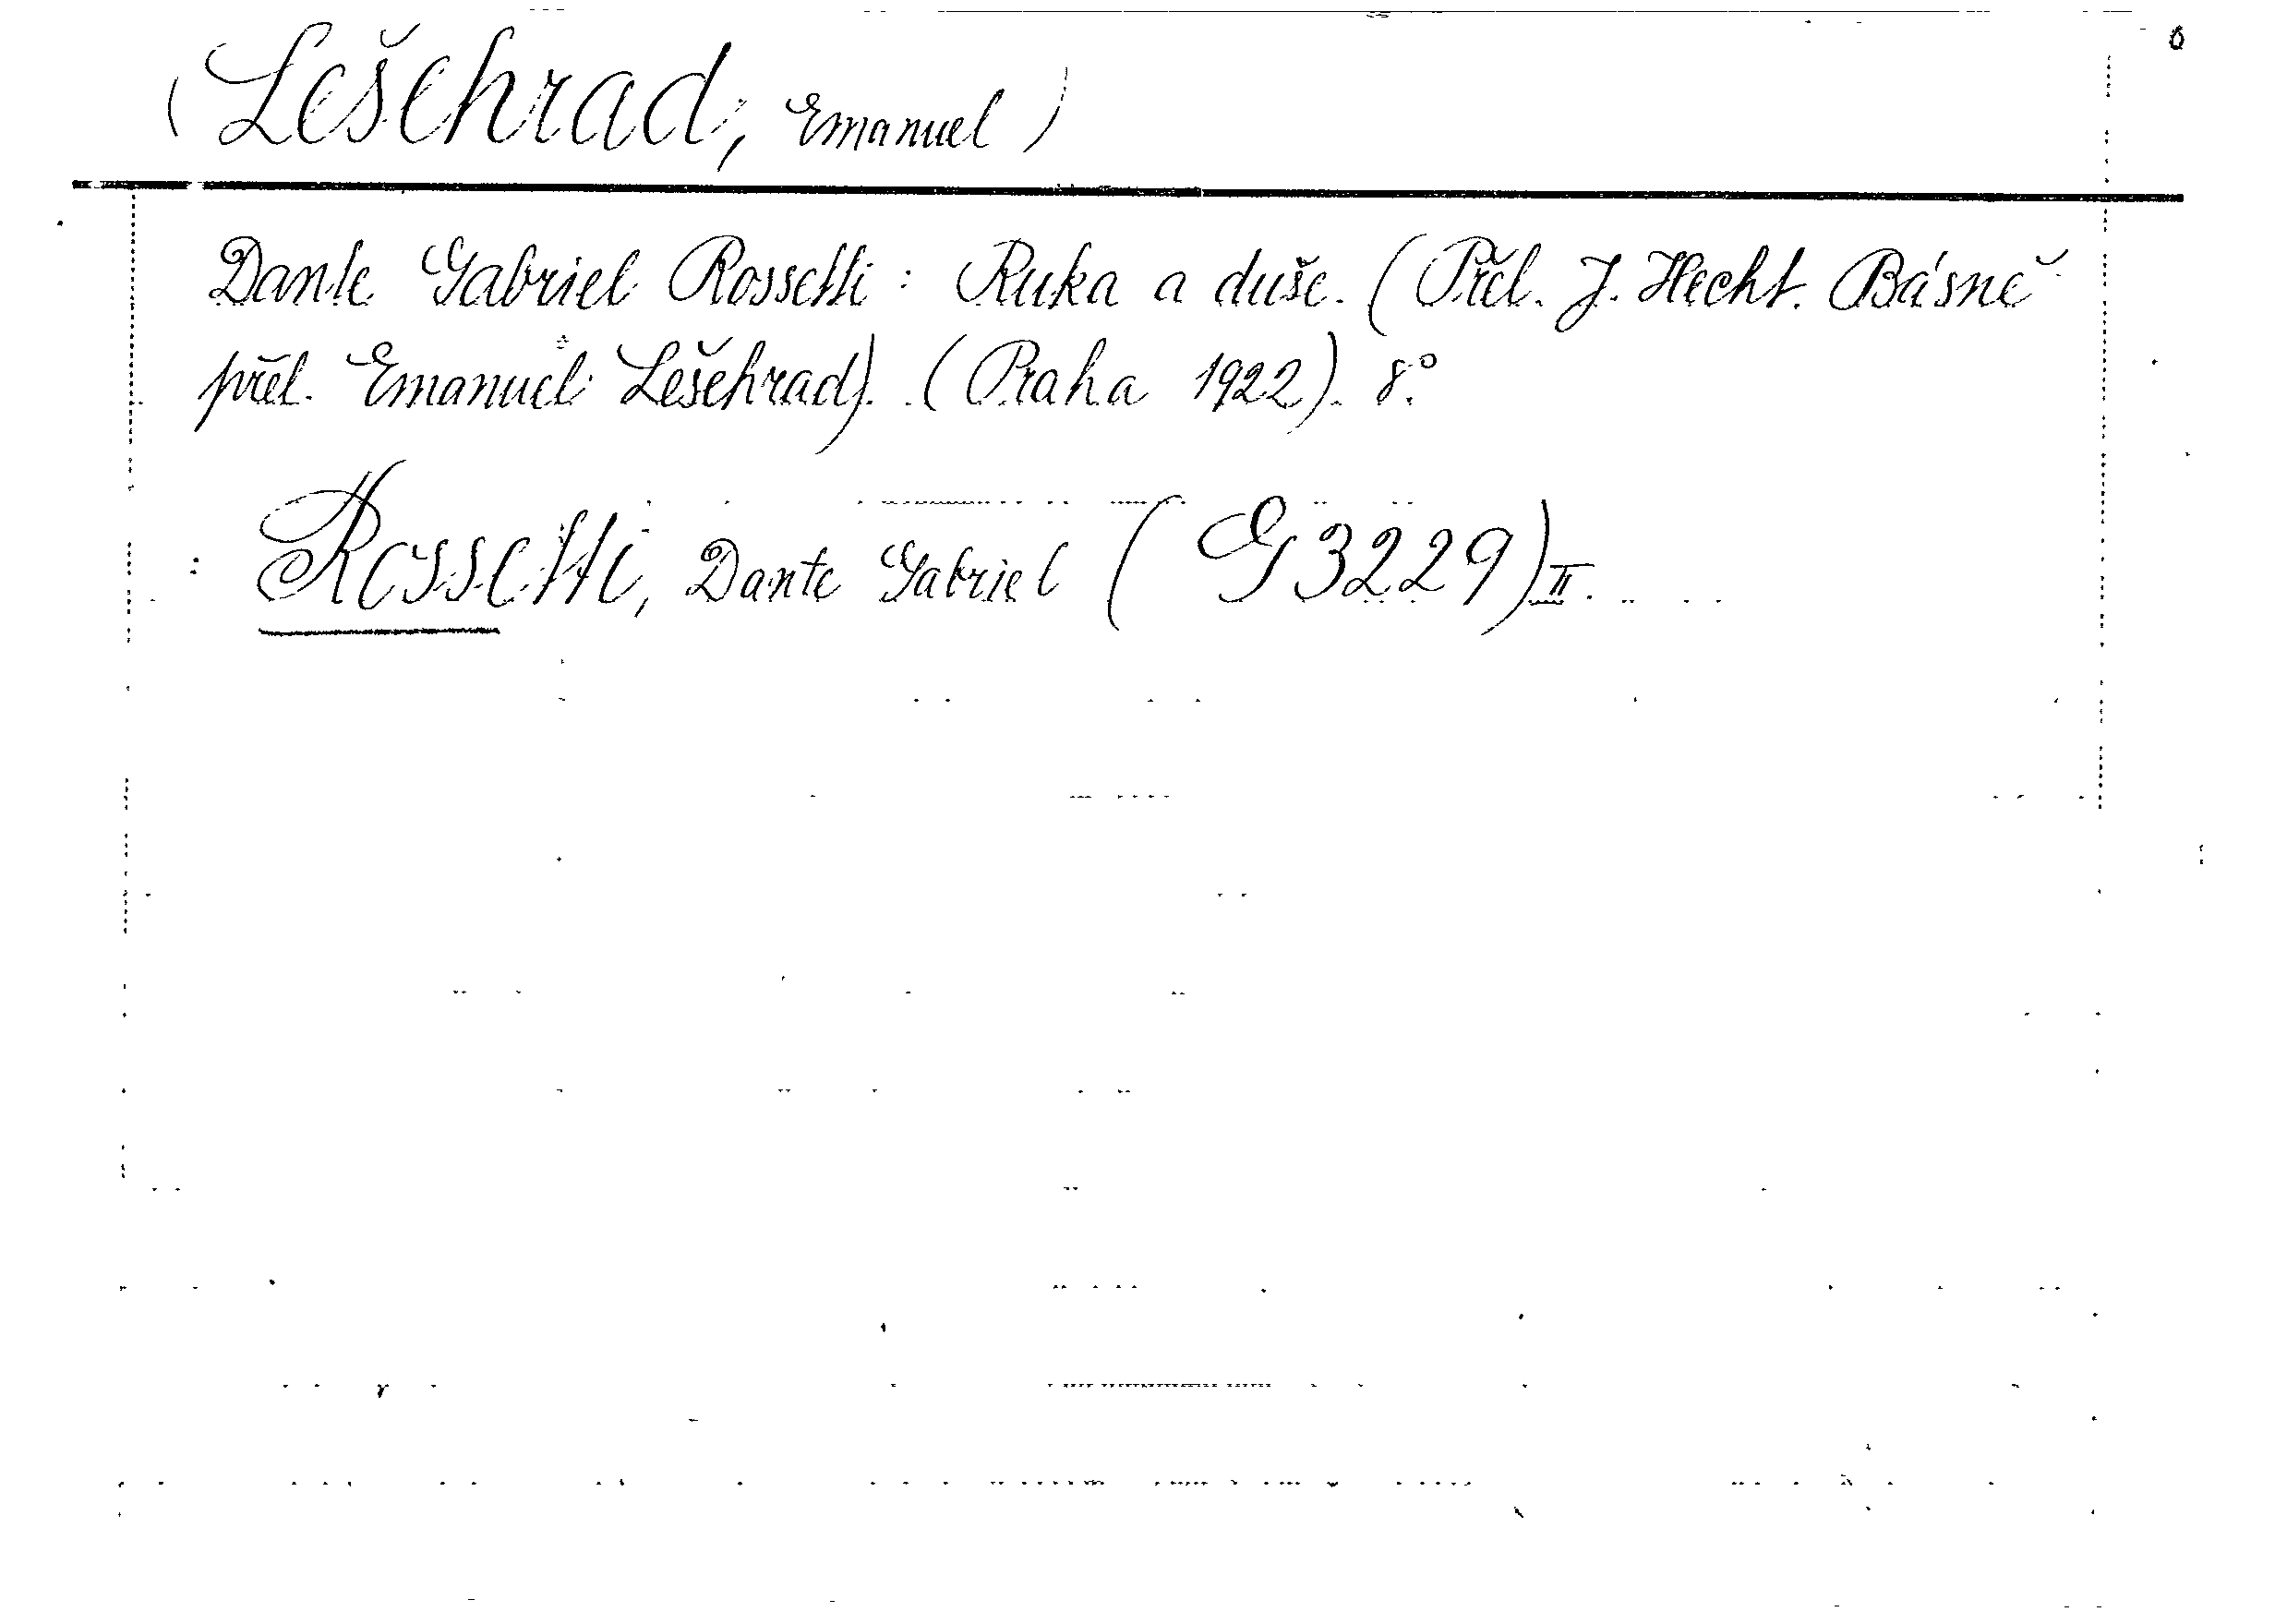 6
(Lešehrad, Emanuel)
Dante Gabriel Rossetti: Ruka a duše. (Přel. J. Hecht. Básně
přel. Emanuel Lešehrad). (Praha 1922). 8.°
Rossetti, Dante Gabriel (G3229) II.